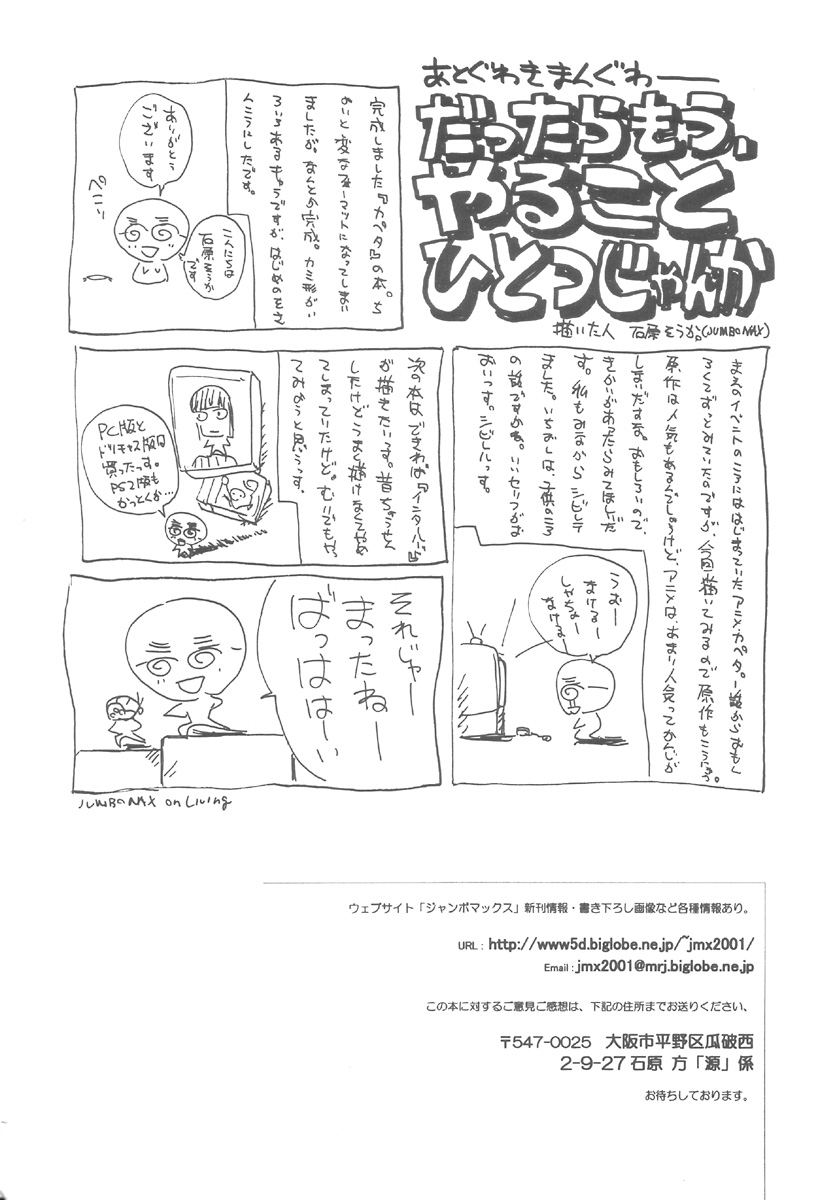 あとぐわきまんぐわー
だったらもう、
やること
ひとつじゃんか
描いた人 石原そうか。(JUMBOMAX)
完成しました『カペタ』の本。ち
ょいと変なフォーマットになってしまい
ましたが。なんとか完成。カミ形がい
ろいろあるキャラですが、はじめのもさ
んこうにしたです。
ありがとう
ございます
こんにちは
石原そうか
です
ペこ
まえのイベントのころにははじまっていたアニメ・カペタ。一話からおもし
ろくてずっとみていたのですが、今回描いてみるので原作もこうにう。
原作は人気もあるんでしょうけど、アニメは、あまり人気ってかんじが
しまいだすな。おもしろいので、
きかいがあったらみてほしいだ
す。私もみながらシビレテ
ました。いちおしは、子供のころ
の話ですかね。いいセリフがな
おいっす。シビレルっす。
うおー
まけるー
しゃちょー
なけるー
次の本は、できれば『インタールード』
が描きたいっす。昔ちょうせん
したけどうまく描けなくてやめ
てしまっていたけど。むりでもやっ
てみようと思うっす。
PC版と
ドリキャス版は
買ったっす。
PS2版も
かっとくか…
それじゃー
まったねー
ばっははーい
JUMBOMAX on Living
ウェブサイト「ジャンボマックス」新刊情報・書き下ろし画像など各種情報あり。
URL : http://www5d.biglobe.ne.jp/~jmx2001/
Email : jmx2001@mrj.biglobe.ne.jp
この本に対するご意見ご感想は、下記の住所までお送りください、
〒547-0025 大阪市平野区瓜破西
2-9-27 石原 方「源」係
お待ちしております。